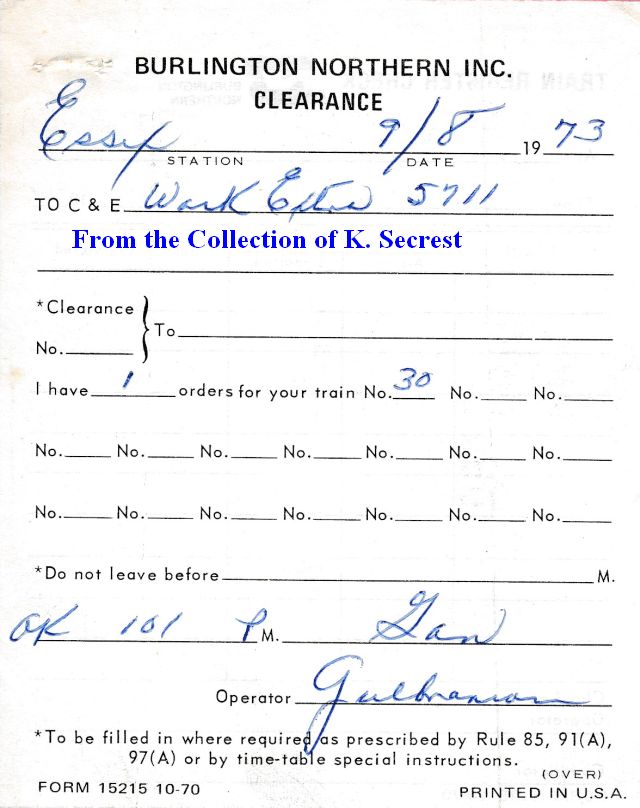 BURLINGTON NORTHERN INC.
CLEARANCE
Essex 9/8 1973
STATION DATE
TO C & E Work Extra 5711
From the Collection of K. Secrest
*Clearance
No.____ } To____
I have 1 orders for your train No. 30 No.____ No.____
No.____ No.____ No.____ No.____ No.____ No.____ No.____
No.____ No.____ No.____ No.____ No.____ No.____ No.____
*Do not leave before____M.
OK 101 P M.
Operator Gulbranson
*To be filled in where required as prescribed by Rule 85, 91(A),
97(A) or by time-table special instructions.
(OVER)
FORM 15215 10-70 PRINTED IN U.S.A.